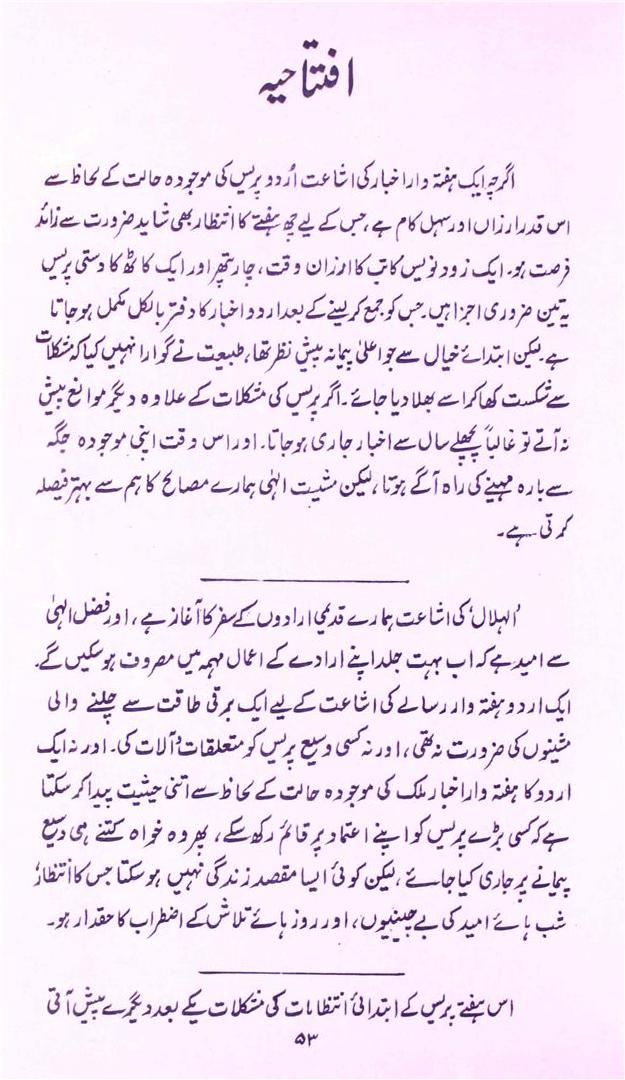 افتتاحیہ
اگرچہ ایک ہفتہ وار اخبار کی اشاعت اُردو پریس کی موجودہ حالت کے لحاظ سے
اس قدر ارزاں اور سہل کام ہے، جس کے لیے چھ ہفتے کا انتظار بھی شاید ضرورت سے زائد
فرصت ہو۔ ایک زود نویس کاتب کا ارزان وقت، چار پتھر اور ایک کاٹھ کا دستی پریس
یہ تین ضروری اجزا ہیں۔ جس کو جمع کر لینے کے بعد اردو اخبار کا دفتر بالکل مکمل ہو جاتا
ہے۔ لیکن ابتدائے خیال سے جو اعلیٰ پیمانہ پیش نظر تھا، طبیعت نے گوارا نہیں کیا کہ مشکلات
سے شکست کھا کر اسے بھلا دیا جائے۔ اگر پریس کی مشکلات کے علاوہ دیگر موانع پیش
نہ آتے تو غالباً پچھلے سال سے اخبار جاری ہو جاتا۔ اور اس وقت اپنی موجودہ جگہ
سے بارہ مہینے کی راہ آگے ہوتا، لیکن مشیت الٰہی ہمارے مصالح کا ہم سے بہتر فیصلہ
کرتی ہے۔
'الہلال' کی اشاعت ہمارے قدیمی ارادوں کے سفر کا آغاز ہے، اور فضل الٰہی
سے امید ہے کہ اب بہت جلد اپنے ارادے کے اعمال مہمہ میں مصروف ہو سکیں گے۔
ایک اردو ہفتہ وار رسالے کی اشاعت کے لیے ایک برقی طاقت سے چلنے والی
مشینوں کی ضرورت نہ تھی، اور نہ کسی وسیع پریس کو متعلقات و آلات کی۔ اور نہ ایک
اردو کا ہفتہ وار اخبار ملک کی موجودہ حالت کے لحاظ سے اتنی حیثیت پیدا کر سکتا
ہے کہ کسی بڑے پریس کو اپنے اعتماد پر قائم رکھ سکے، پھر وہ خواہ کتنے ہی وسیع
پیمانے پر جاری کیا جائے، لیکن کوئی ایسا مقصد زندگی نہیں ہو سکتا جس کا انتظار
شب ہائے امید کی بے چینیوں، اور روز ہائے تلاش کے اضطراب کا حقدار ہو۔
اس ہفتے پریس کے ابتدائی انتظامات کی مشکلات یکے بعد دیگرے پیش آتی
۵۳